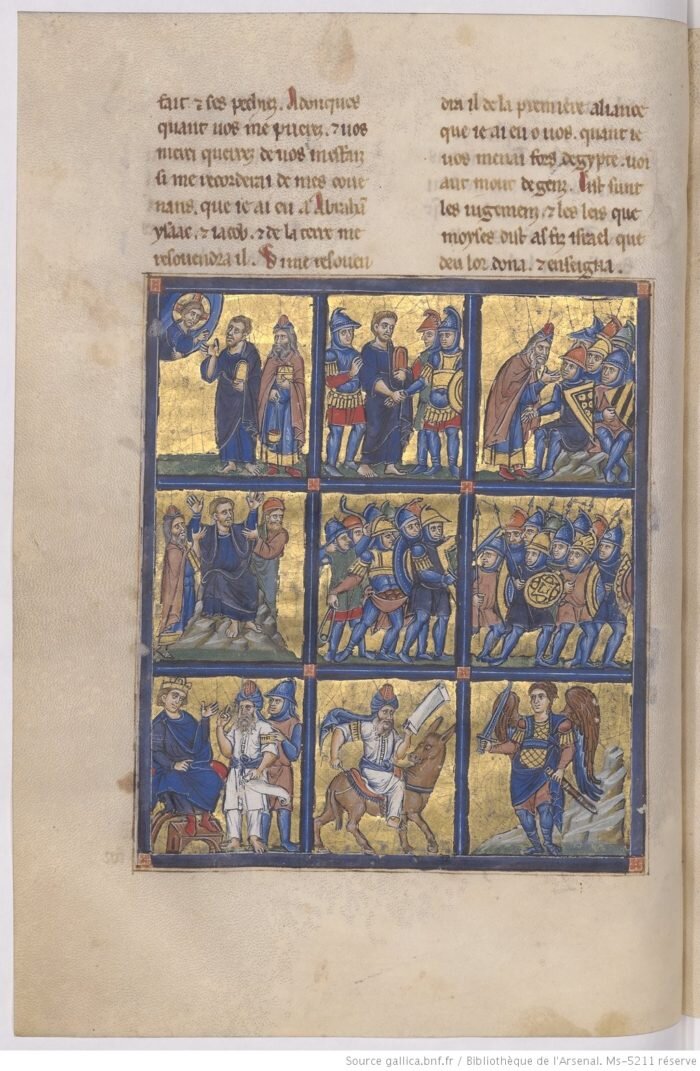 fait ⁊ ses pechiez. Adonques
quant uos me prierez. ⁊ uos
merci querrez de uos mesfaiz
si me recorderai de mes coue
nans, que ie ai eu a Abrahā
ysaac, ⁊ iacob, ⁊ de la terre me
resouendra il. Si me resouen
dra il de la premiere aliance
que ie ai eu o uos, quant ie
uos menai fors degypte. uoi
ant mout de genz. sunt
les iugemenz ⁊ les leis que
moyses dist as fiz israel que
deu lor dona. ⁊ enseigna.
Source gallica.bnf.fr / Bibliothèque de l'Arsenal. Ms-5211 réserve